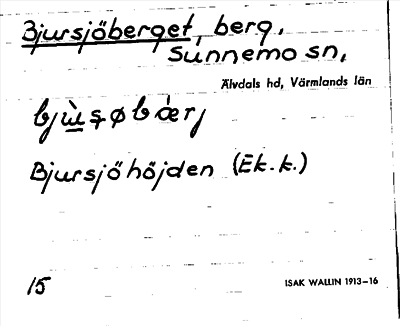 Bjursjöberget, berg,
Sunnemo sn,
Älvdals hd, Värmlands län
Bjursjöhöjden (Ek.k.)
15
ISAK WALLIN 1913–16